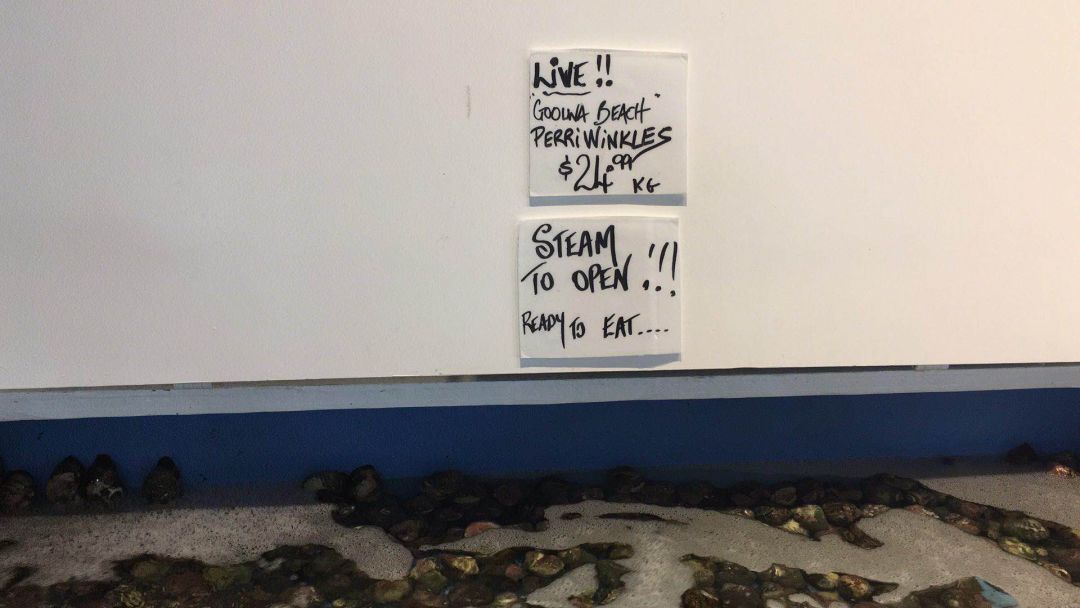 LiVE !!
"GOOLWA BEACH"
PERRiWiNKLES
$24.99 KG
STEAM
TO OPEN !!!
READY TO EAT....